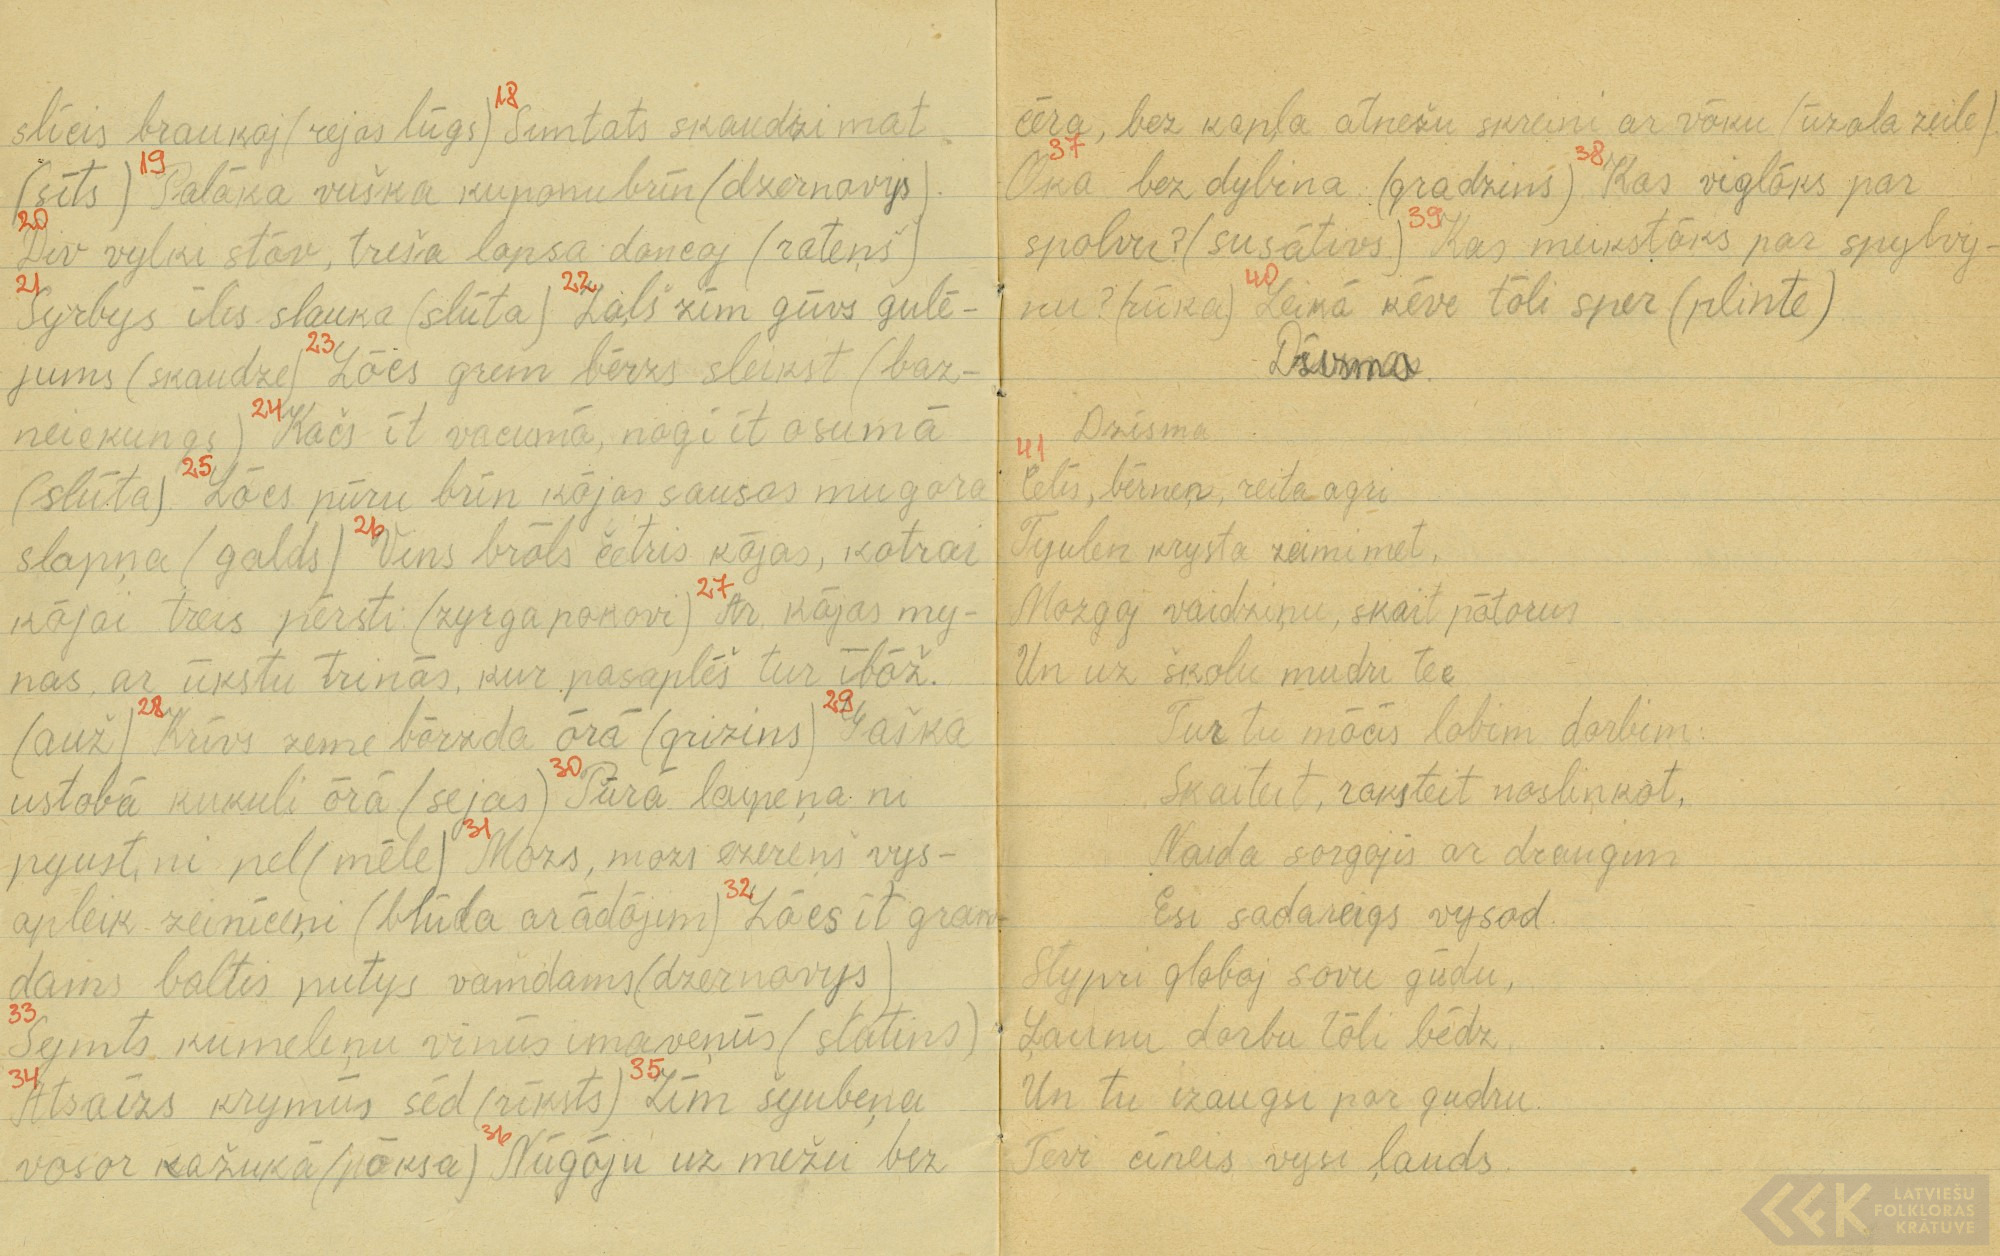 slīcis braukaj (rejas lūgs) 18 Simtats skaudzi mat
(sīts) 19 Palāka vuška kuponu brīn (dzernovys).
20 Div vylki stōv, treša lapsa dancoj (rateņš)
21 Syrbys ilis slauka (slūta) 22 Lals zim gūvs gulē-
jums (skaudze) 23 Lōcis grem bērzs sleikst (baz-
neickungs) 24 Kačs īt vacumā, nogi īt osumā
(slūta) 25 Lōcs pūru brīn kōjas sausas mugora
slapņa (galds) 26 Vins brōls četris kōjas, kotrai
kōjai treis pērsti (zyrga pokovi) 27 Ar kōjas my-
nas, ar ūkstu trinās, kur pasaplēš tur ībōž.
(auž) 28 Krīvs zeme bōrzda ōrā (grizins) 29 Gaška
ustobā kukuli ōrā (sejas) 30 Pūrā lapeņa ni
pyust, ni pel (mēle) 31 Mozs, mozs ezereņš vys-
apleik zeiniceņi (blūda ar ādōjim) 32 Lōcs īt gram-
dams baltis putys vamdams (dzernovys)
33 Symts kumeleņu vinūs imaveņūs (statins)
34 Atsaizs krymūs sēd (rīksts) 35 Zīm šyubeņa
vosor kažukā (pōksa) 36 Nūgōju uz mežu bez
cēra, bez kapļa atnežu skreini ar vōku (ūzala zeile).
37 Oka bez dybina (gradzinś) 38 Kas viglōks par
spolvu? (susātivs) 39 Kas meikstōks par spylvy-
nu? (rūka) 40 Leikā kēve tōli sper (plinte)
Dzīsma.
Dzīsma
41 Celis, bērneņ, reita agri
Tyuleņ krysta zeimi met,
Mozgoj vaidziņu, skait pōtorus
Un uz školu mudri tec
Tur tu mōcis lobim dorbim:
Skaiteit, raksteit noslinkot,
Naida sorgojis ar draugim
Esi sadareigs vysod.
Stypri globoj sovu gūdu,
Ļaunu dorbu tōli bēdz.
Un tu izaugsi par gudru.
Tevi cīneis vysi ļauds.
LATVIEŠU
FOLKLORAS
KRĀTUVE